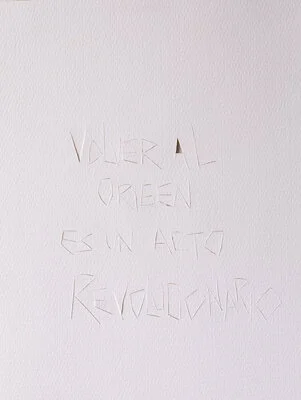 VOLVER AL
ORIGEN
ES UN ACTO
REVOLUCIONARIO